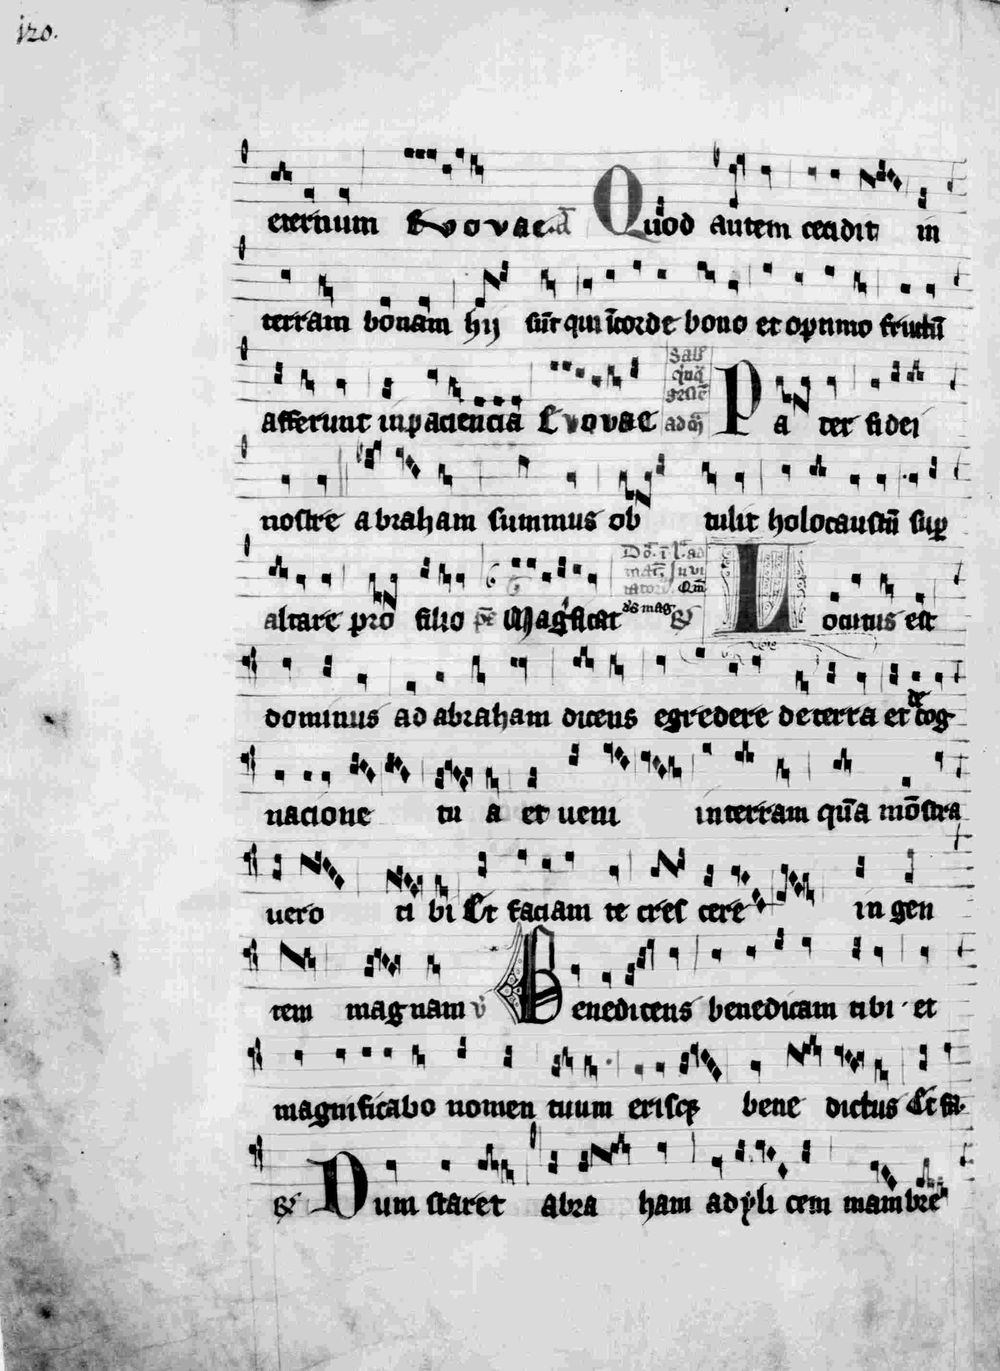 120.
eternum Evovae. a Quod autem cecidit in
terram bonam hij sūt qui ī corde bono et optimo fructū
afferunt in paciencia Evovae Sabb̄ ad Pa ter fidei
nostre abraham summus ob tulit holocaustū sup
altare pro filio ps̄ Magnificat Do. i L. ad Locutus est
dominus ad abraham dicens egredere de terra et de cog
nacione tu a et veni in terram quā mōstra
vero ti bi Et faciam te cres cere in gen
tem magnam v̄ Benedicens benedicam tibi et
magnificabo nomen tuum erisqȝ bene dictus Et fa.
R Dum staret abra ham ad yli cem mambre